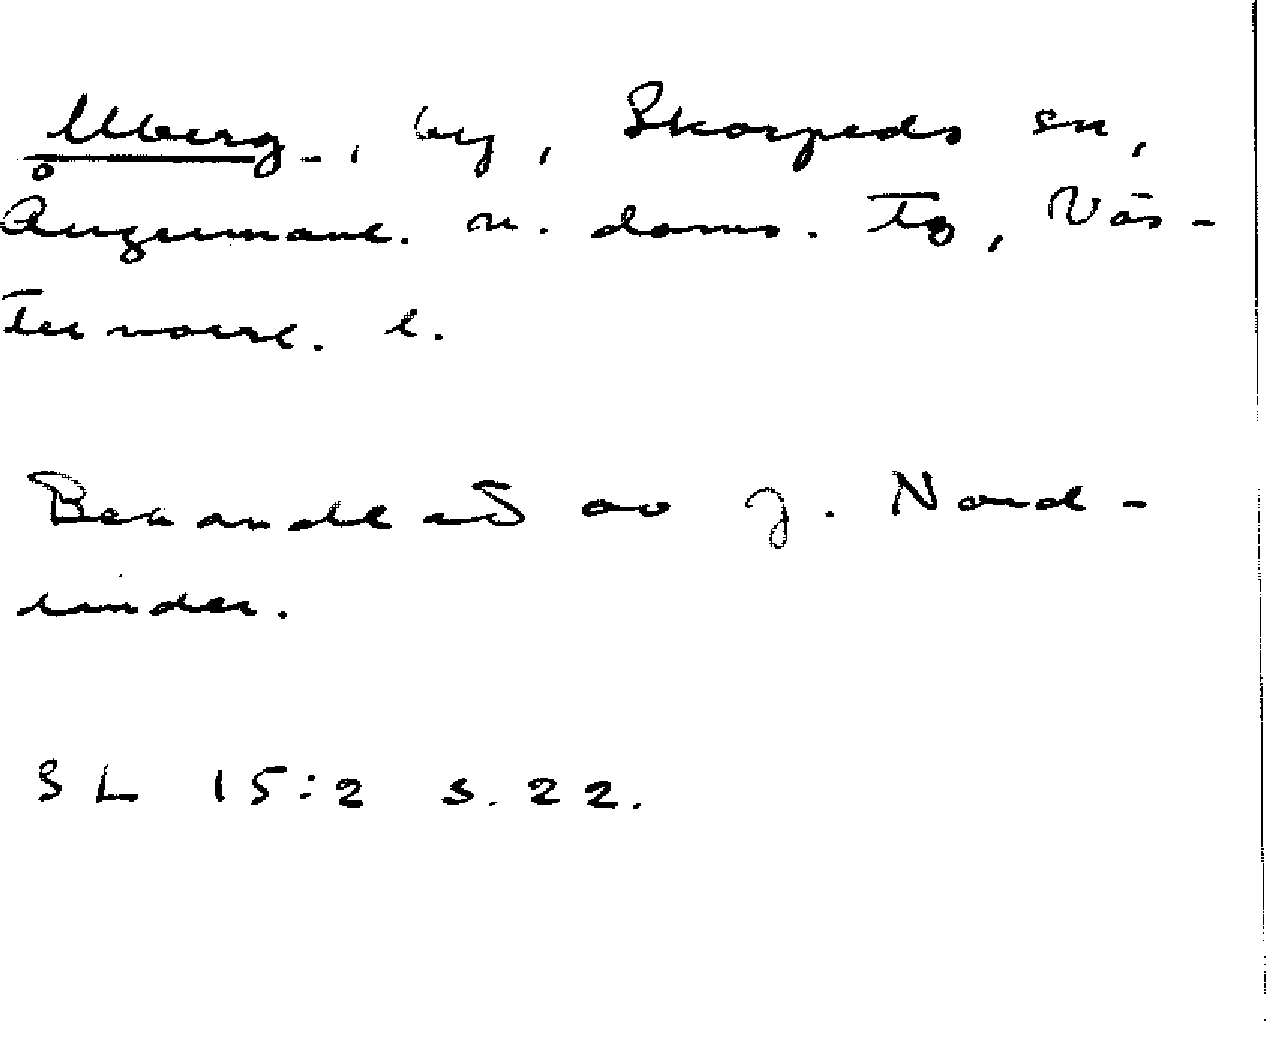 Ulberg, by, Skorpeds sn,
Ångermanl. n. doms. Tg, Väs-
ternorrl. l.
Behandlat av J. Nord-
lander.
SL 15:2 s. 22.